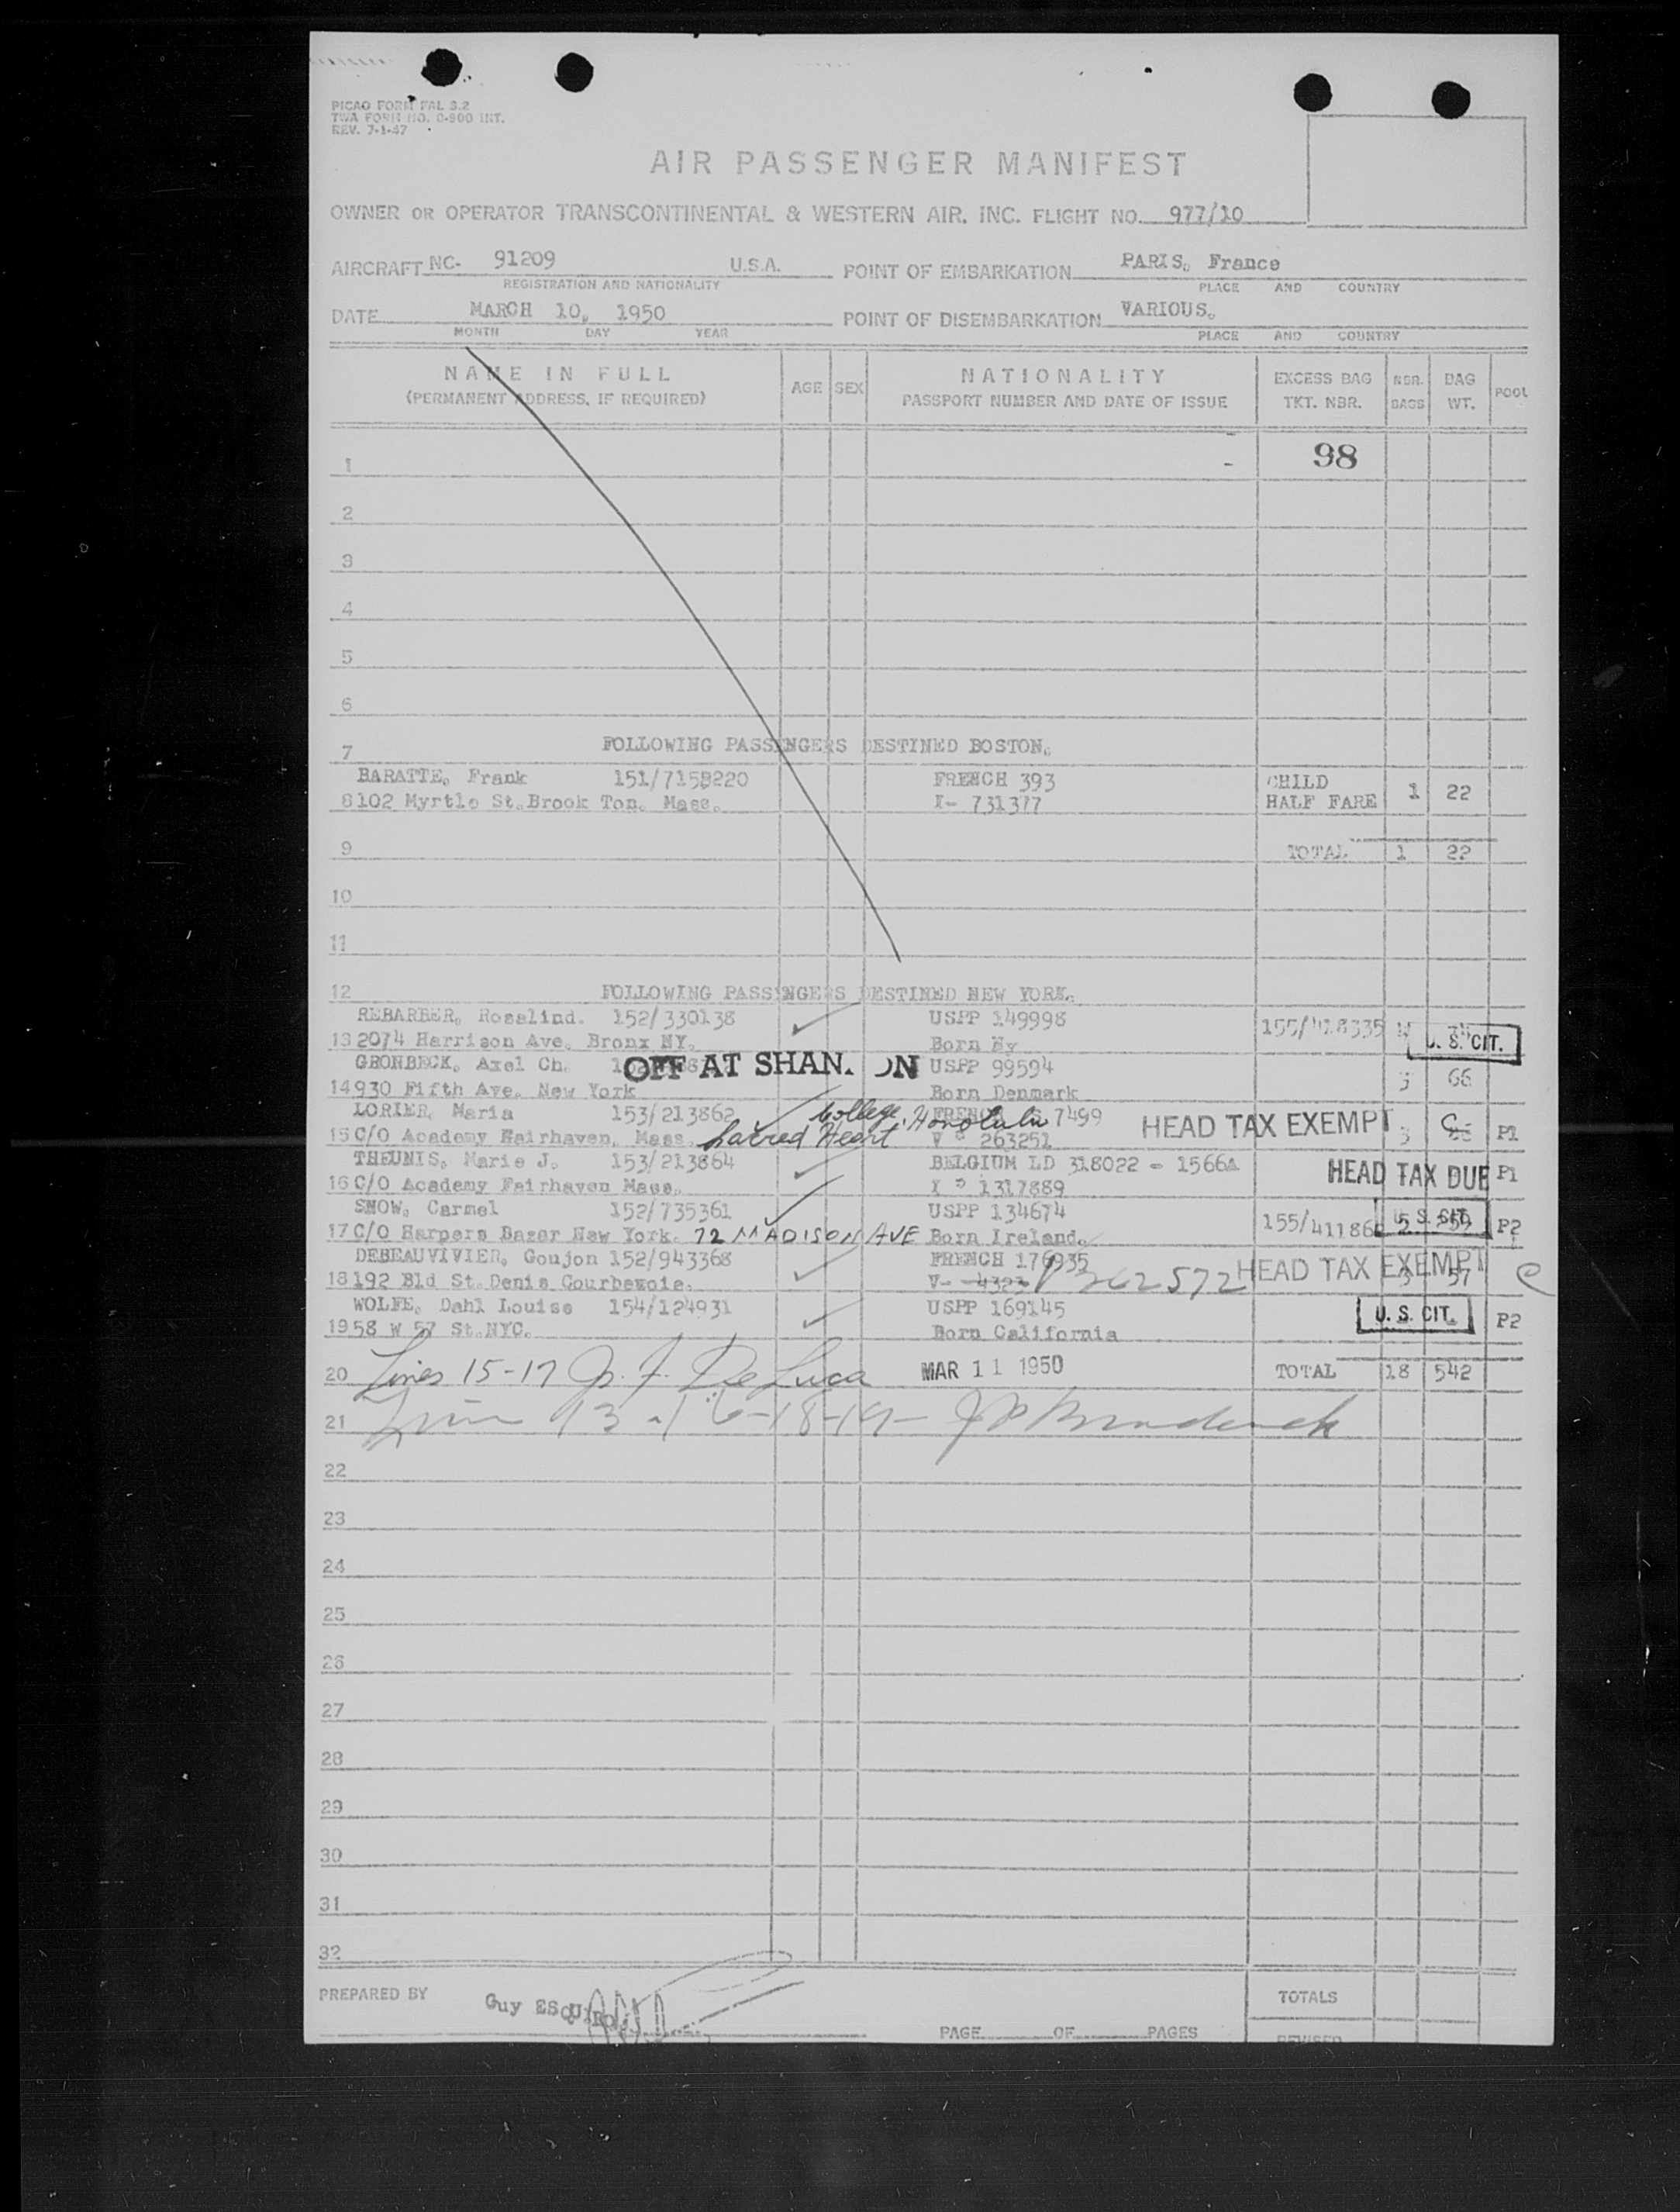 PICAO FORM FAL 3.2
TWA FORM NO. 0-800 INT.
REV. 7-1-47
AIR PASSENGER MANIFEST
OWNER OR OPERATOR TRANSCONTINENTAL & WESTERN AIR, INC. FLIGHT NO. 977/10
AIRCRAFT NC- 91209 U.S.A. POINT OF EMBARKATION PARIS, France
REGISTRATION AND NATIONALITY PLACE AND COUNTRY
DATE MARCH 10, 1950 POINT OF DISEMBARKATION VARIOUS.
MONTH DAY YEAR PLACE AND COUNTRY
NAME IN FULL AGE SEX NATIONALITY EXCESS BAG NBR. BAG POOL
(PERMANENT ADDRESS, IF REQUIRED) PASSPORT NUMBER AND DATE OF ISSUE TKT. NBR. BAGS WT.
1 98
2
3
4
5
6
7 FOLLOWING PASSENGERS DESTINED BOSTON.
BARATTE, Frank 151/715B220 FRENCH 393 CHILD
8 102 Myrtle St. Brook Ton. Mass. I- 731377 HALF FARE 1 22
9 TOTAL 1 22
10
11
12 FOLLOWING PASSENGERS DESTINED NEW YORK.
REBARBER, Rosalind. 152/330138 USPP 149998 155/418335
13 2074 Harrison Ave. Bronx NY. Born Ny U.S. CIT.
GRONBECK, Axel Ch. OFF AT SHAN. ON USPP 99594
14 930 Fifth Ave. New York Born Denmark 3 66
LORIER, Maria 153/213862 College, Honolulu 7499 HEAD TAX EXEMPT
15 C/O Academy Fairhaven, Mass. Sacred Heart V 263251 3 P1
THEUNIS, Marie J. 153/213864 BELGIUM LD 318022 - 1566A HEAD TAX DUE P1
16 C/O Academy Fairhaven Mass. I 1317889
SNOW, Carmel 152/735361 USPP 134674 155/41186 U.S. CIT. P2
17 C/O Harpers Bazer New York. 72 MADISON AVE Born Ireland.
DEBEAUVIVIER, Goujon 152/943368 FRENCH 176935
18 192 Bld St. Denis Courbevoie. V- 4323 V 262572 HEAD TAX EXEMPT 3 57 C
WOLFE, Dahl Louise 154/124931 USPP 169145 U.S. CIT. P2
19 58 W 57 St. NYC. Born California
20 Lines 15-17 J. F. De Luca MAR 11 1950 TOTAL 18 542
21 Line 13-16-18-19-
22
23
24
25
26
27
28
29
30
31
32
PREPARED BY Guy TOTALS
PAGE OF PAGES REVISED